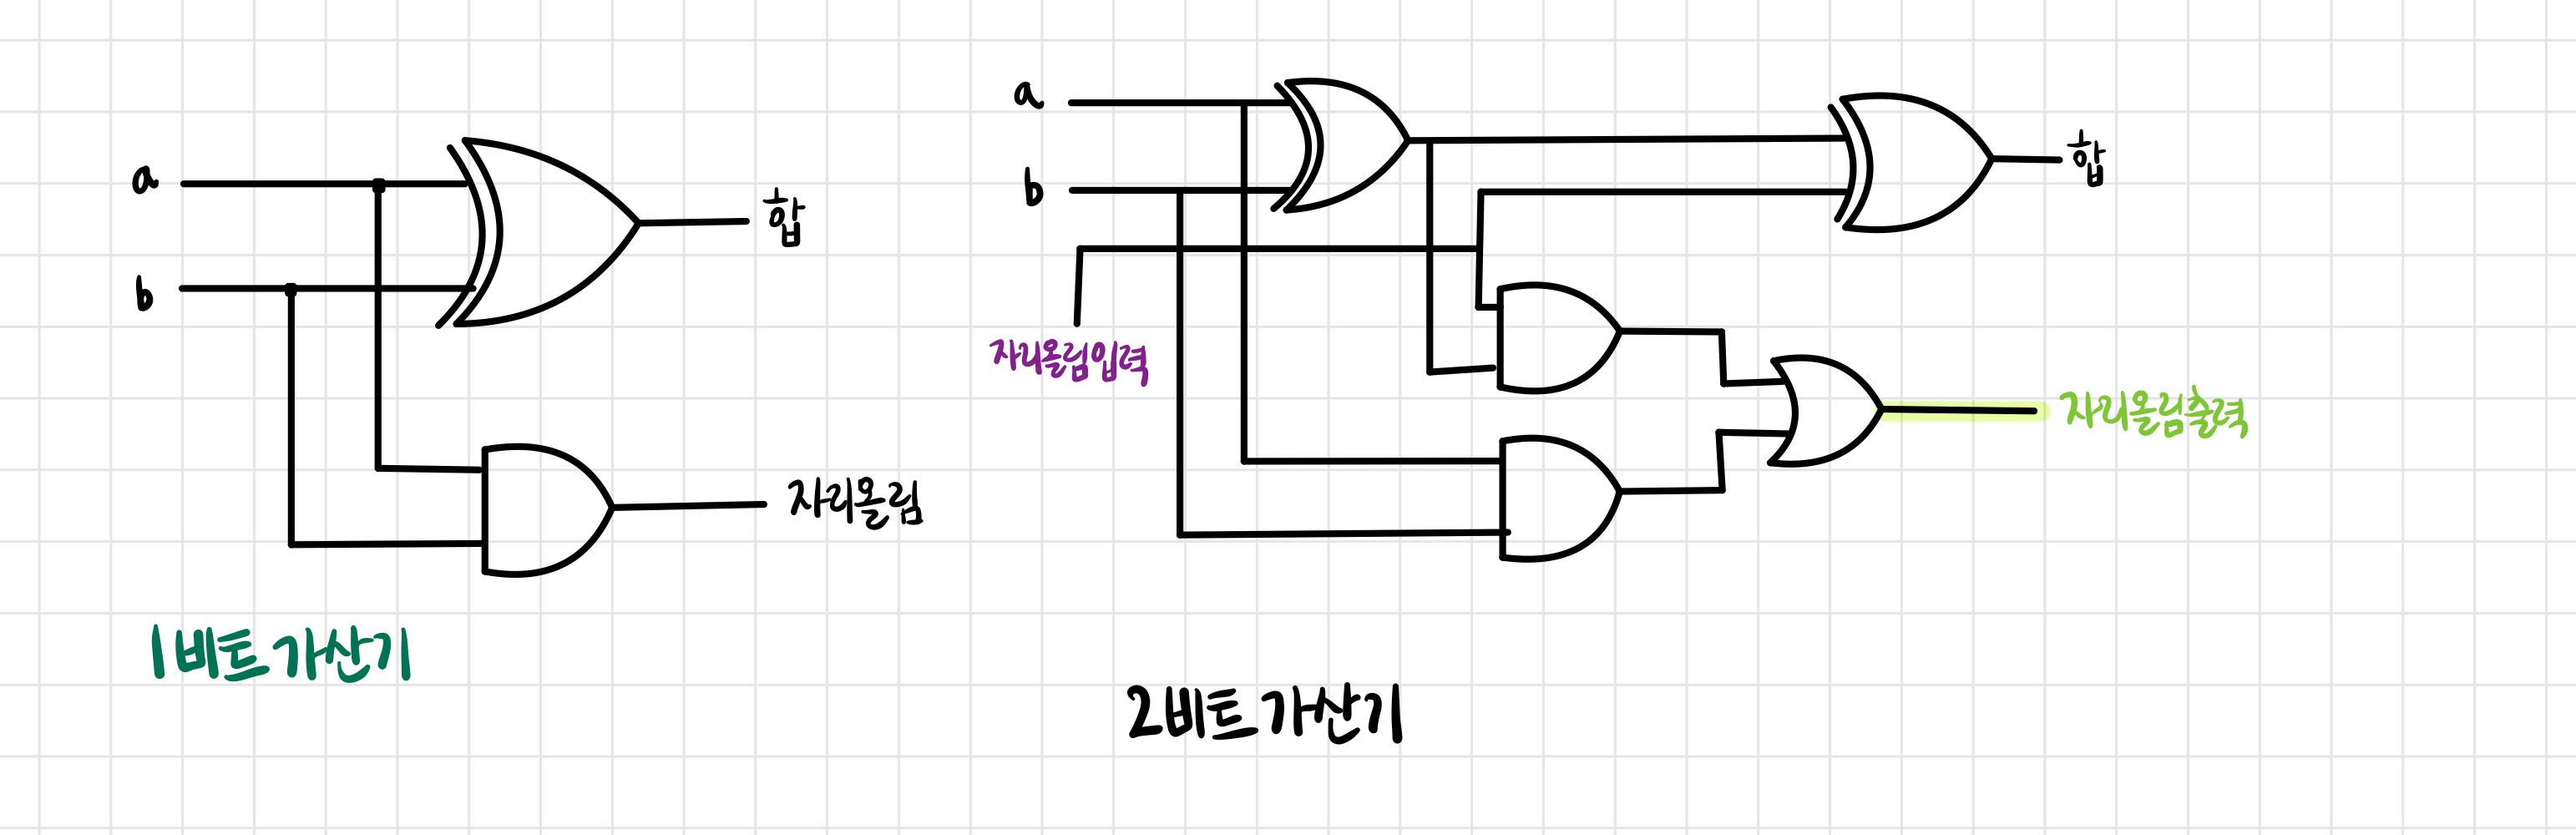 a
b
합
자리올림
1비트 가산기
a
b
자리올림입력
합
자리올림출력
2비트 가산기